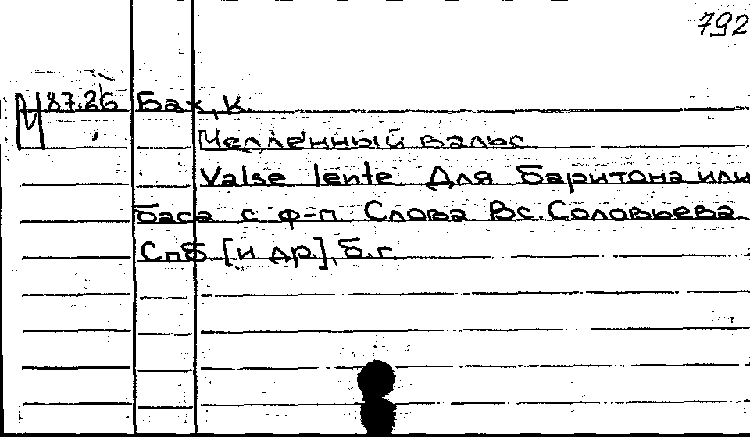 792
И 87.26 Бах, К.
Медленный вальс
Valse lente Для баритона или
баса с ф-п. Слова Вс. Соловьева.
Спб [и др.], б.г.